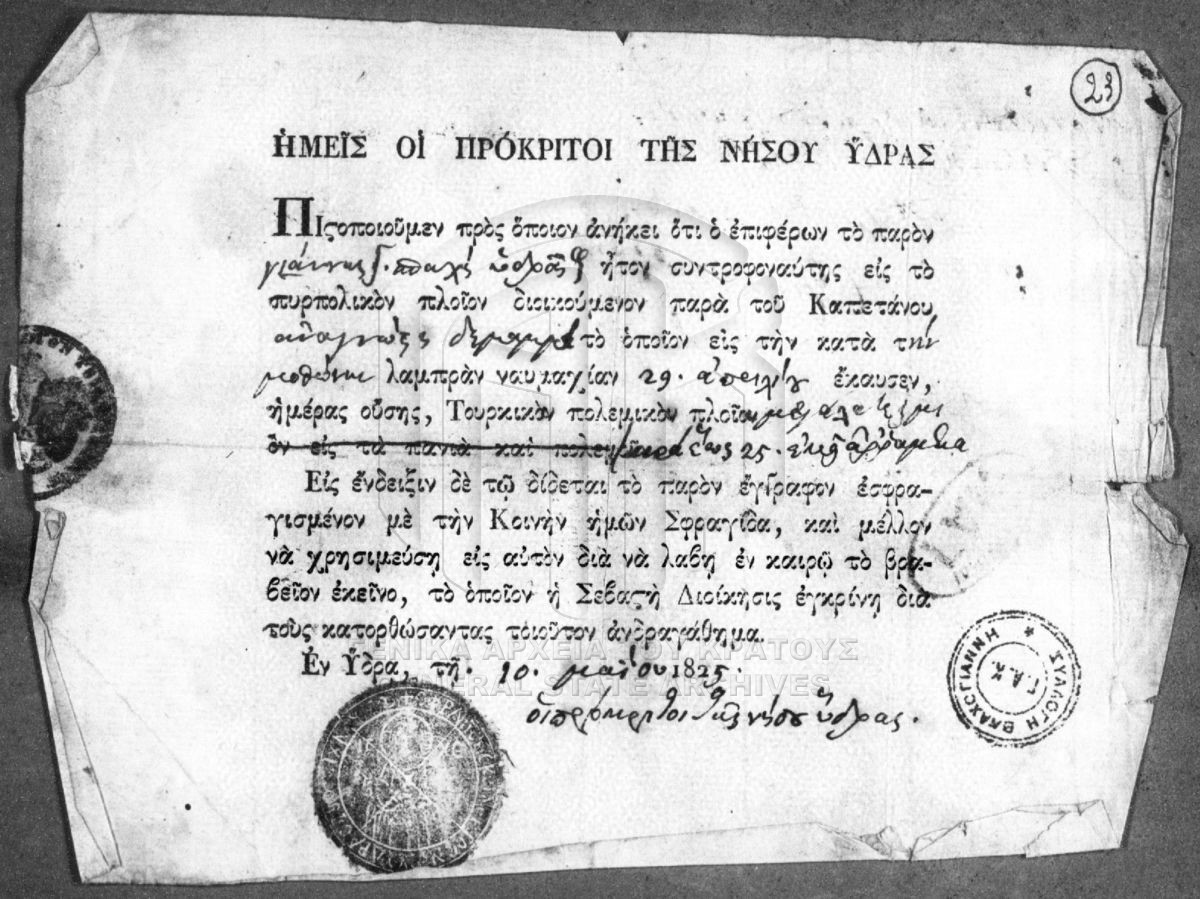 23
ἩΜΕΙ͂Σ ΟἹ ΠΡΌΚΡΙΤΟΙ ΤΗ͂Σ ΝΉΣΟΥ ὝΔΡΑΣ
ΠΙςοποιοῦμεν πρὸς ὅποιον ἀνήκει ὅτι ὁ ἐπιφέρων τὸ παρὸν
γιάννης ἦτον συντροφοναύτης εἰς τὸ
πυρπολικὸν πλοῖον διοικούμενον παρὰ τοῦ Καπετάνου
τὸ ὁποῖον εἰς τὴν κατὰ τὴν
μοθώνην λαμπρὰν ναυμαχίαν 29. ἀπριλίου ἔκαυσεν,
ἡμέρας οὔσης, Τουρκικὸν πολεμικὸν πλοῖον
ὂν εἰς τὰ πανιὰ καὶ 25.
Εἰς ἔνδειξιν δὲ τῷ δίδεται τὸ παρὸν ἔγγραφον ἐσφρα-
γισμένον μὲ τὴν Κοινὴν ἡμῶν Σφραγῖδα, καὶ μέλλον
νὰ χρησιμεύσῃ εἰς αὐτὸν διὰ νὰ λαβῃ ἐν καιρῷ τὸ βρα-
βεῖον ἐκεῖνο, τὸ ὁποῖον ἡ Σεβαςὴ Διοίκησις ἐγκρίνῃ διὰ
τοὺς κατορθώσαντας τοιοῦτον ἀνδραγάθημα.
Ἐν Ὕδρα, τῇ. 10. μαΐου 1825.
οἱ πρόκριτοι τῆς νήσου ὕδρας.
ΓΕΝΙΚΑ ΑΡΧΕΙΑ ΤΟΥ ΚΡΑΤΟΥΣ
GENERAL STATE ARCHIVES
ΣΥΛΛΟΓΗ ΒΛΑΧΟΓΙΑΝΝΗ
Γ.Α.Κ.